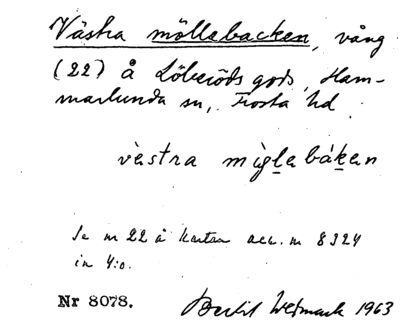 Västra möllebacken, vång
(22) å Löberöds gods, Ham-
marlunda sn, Frosta hd.
vèstra mìglebákẹn
Se nr 22 å kartan acc. nr 8324
in 4:o.
Nr 8078. Bertil Wetmark 1963